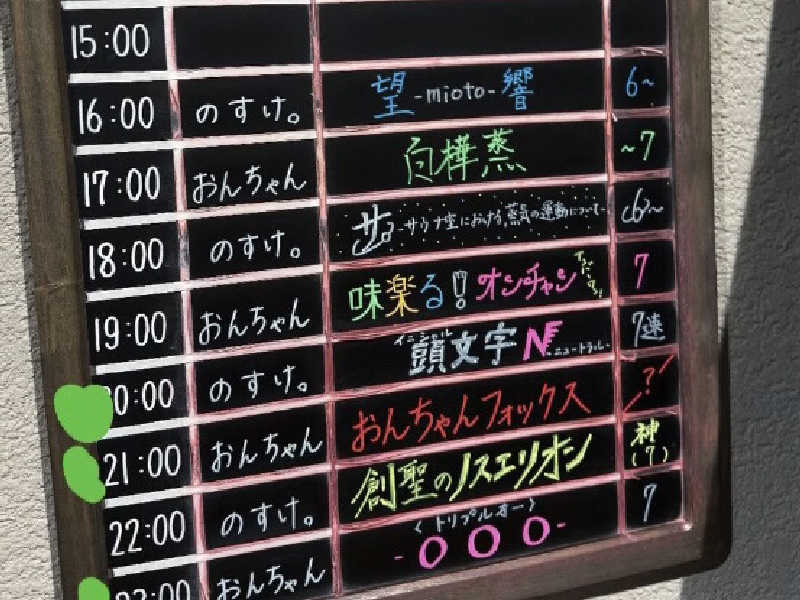 15:00
16:00 のすけ。 望-mioto-響 6~
17:00 おんちゃん 白樺蒸 ~7
18:00 のすけ。 サ-サウナ室における蒸気の運動について-
19:00 おんちゃん 味楽る!オンチャン 7
のすけ。 イニシャル 頭文字N -ニュートラル- 7連
21:00 おんちゃん おんちゃんフォックス ?
22:00 のすけ。 創聖のノスエリオン 神(7)
おんちゃん <トリプルオー> -OOO- 7